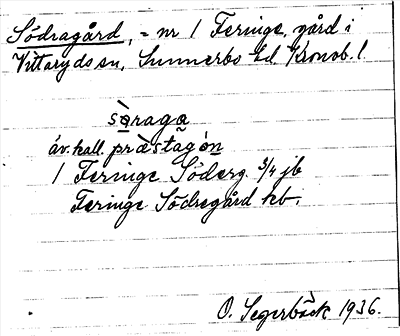 Södragård, = nr 1 Feringe, gård i
Vittaryds sn, Sunnerbo hd Kronob. l.
sǝ̀raga
äv. kall. præstagón
1 Feringe Söderg. 3/4 jb
Feringe Södregård kb.
O. Segerbäck 1936.